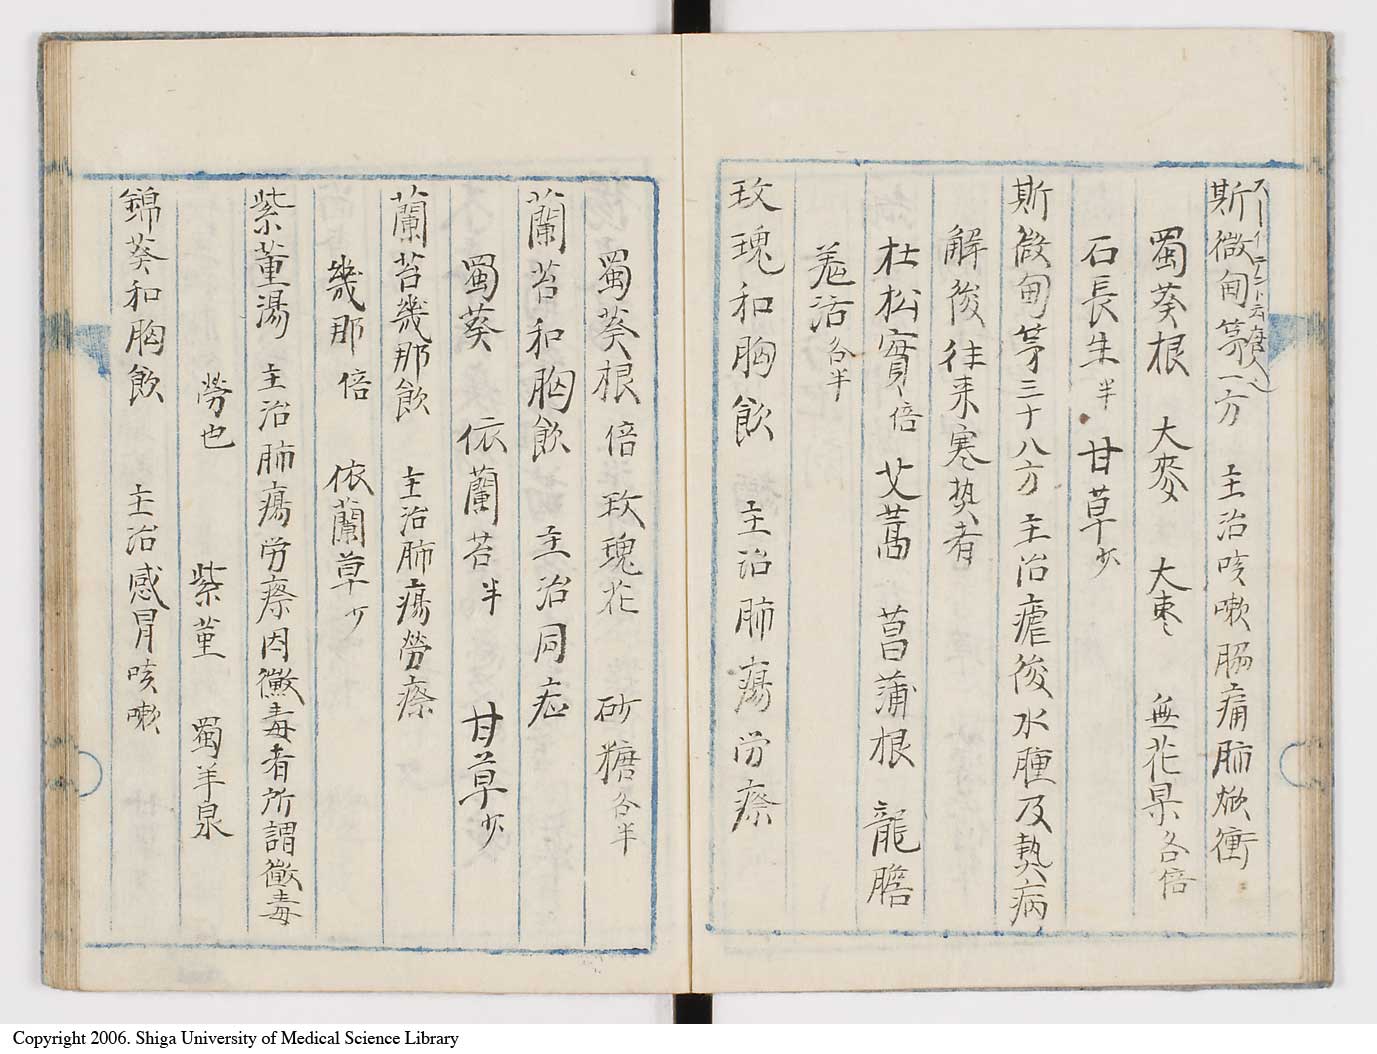 斯微甸等一方　主治咳嗽腸痛肺焮衝
蜀葵根　大麥　大棗　無花果各倍
石長生半　甘草少
斯微甸等三十八方主治瘧後水腫及熱病
解後往来寒热者
杜松實倍　艾蒿　菖蒲根　龍膽
羗活各半
玫瑰和胸飲　主治肺瘍労瘵
蜀葵根倍玫瑰花　砂糖各半
蘭苔和胸飲　主治同症
蜀葵　依蘭苔半　甘草少
蘭苔幾那飲　主治肺瘍勞瘵
幾那倍　依蘭草少
紫菫湯　主治肺瘍労瘵因黴毒者所謂黴毒
勞也　紫菫　蜀羊泉
錦葵和胸飲　主治感冒咳嗽
Copyright 2006. Shiga University of Medical Science Library